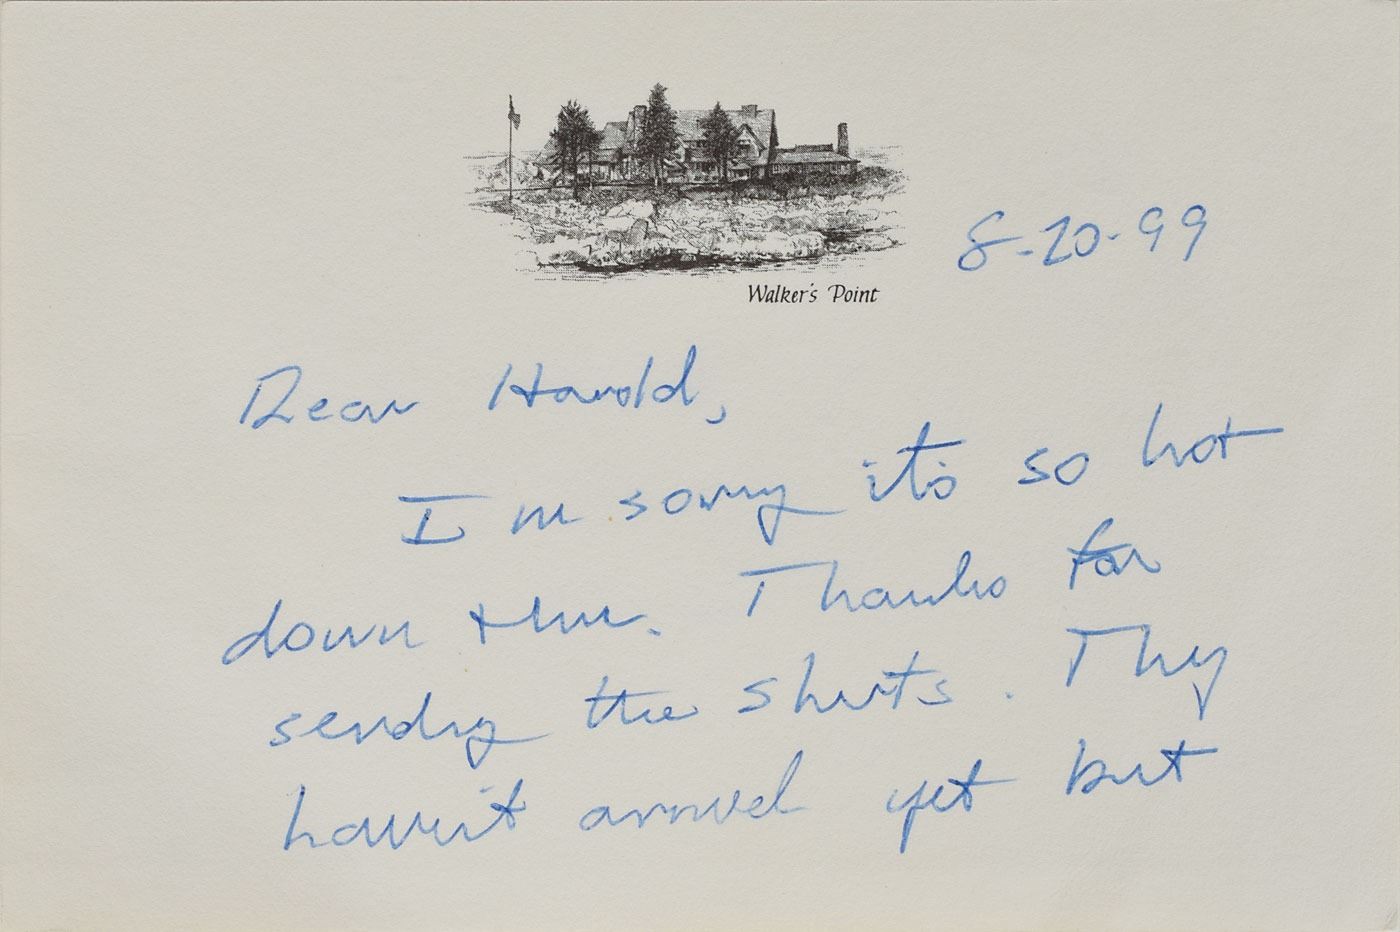 Walker's Point
8-20-99
Dear Harold,
I'm sorry it's so hot
down there. Thanks for
sending the shirts. They
haven't arrived yet but